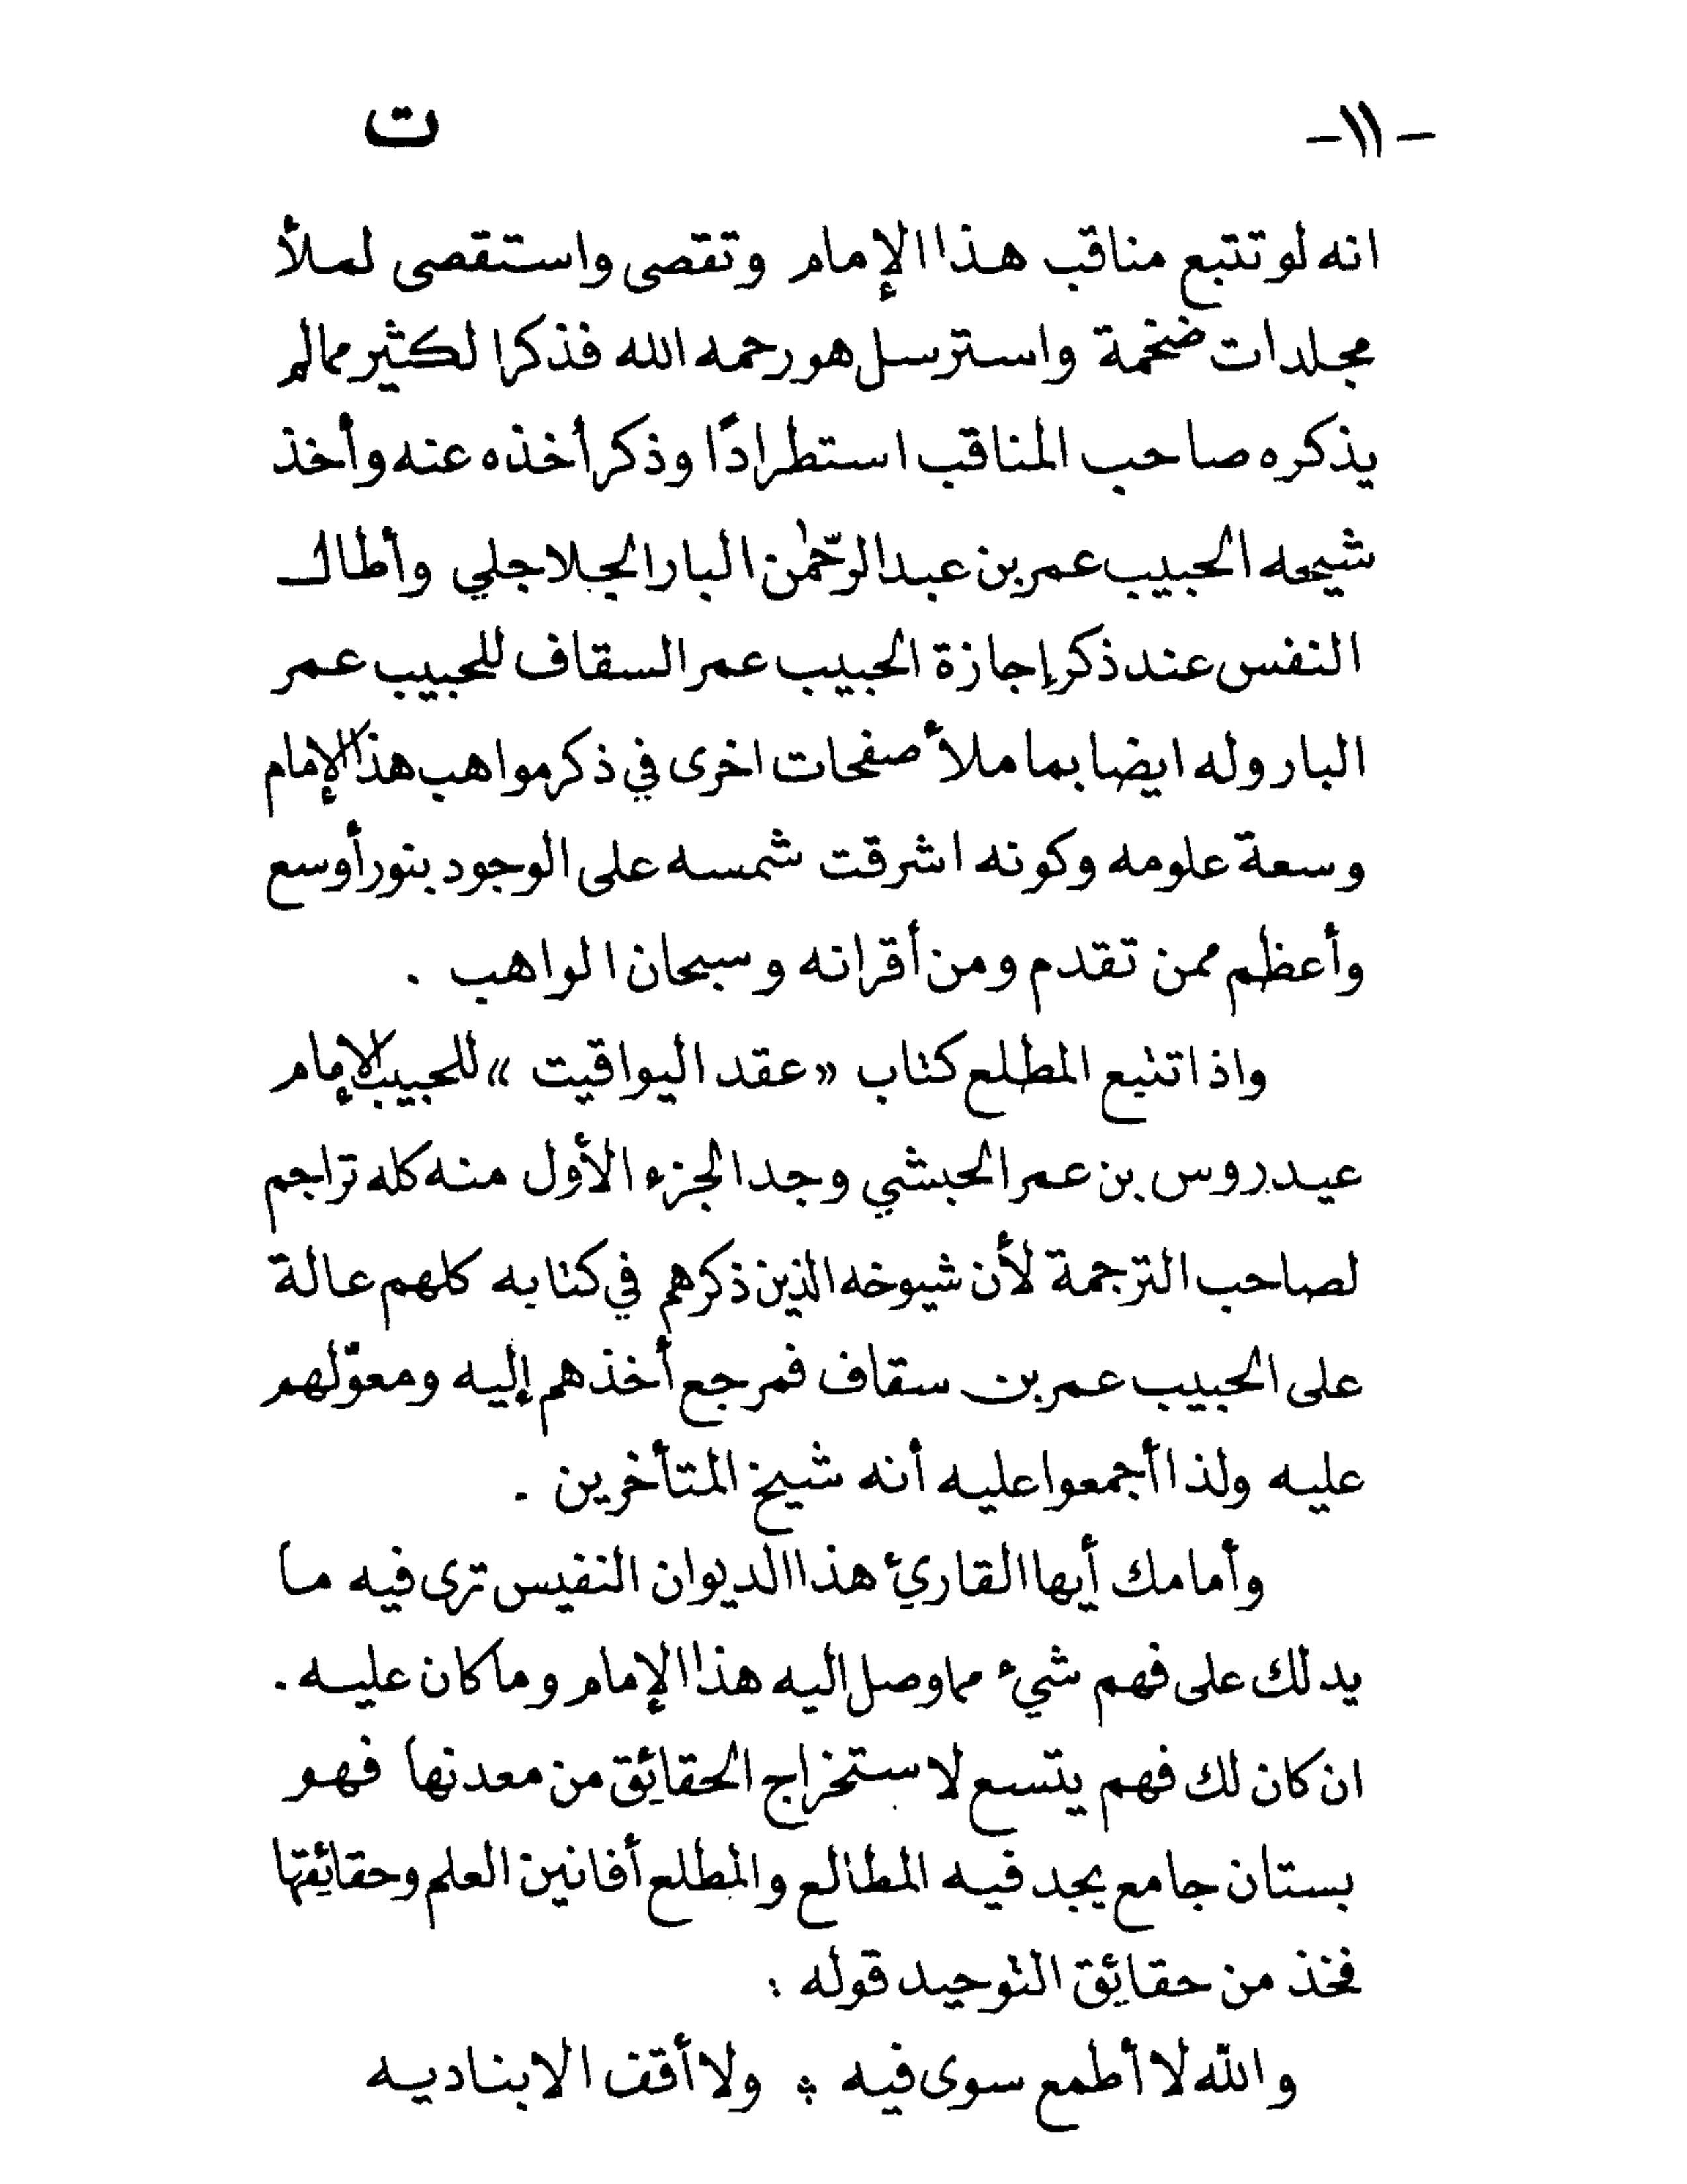 -١١- ت
انه لو تتبع مناقب هذا الإمام وتقصى واستقصى لملأ
مجلدات ضخمة واسترسل هو رحمه الله فذكر الكثير مما لم
يذكره صاحب المناقب استطرادًا وذكر أخذه عنه وأخذ
شيخه الحبيب عمر بن عبد الرّحمٰن البار الجلاجلي وأطال
النفس عند ذكر إجازة الحبيب عمر السقاف للحبيب عمر
البار وله ايضا بما ملأ صفحات اخرى في ذكر مواهب هذا الإمام
وسعة علومه وكونه اشرقت شمسه على الوجود بنور أوسع
وأعظم ممن تقدم ومن أقرانه وسبحان الواهب .
واذا تتبع المطلع كتاب «عقد اليواقيت» للحبيب الإمام
عيدروس بن عمر الحبشي وجد الجزء الأول منه كله تراجم
لصاحب الترجمة لأن شيوخه الذين ذكرهم في كتابه كلهم عالة
على الحبيب عمر بن سقاف فمرجع أخذهم إليه ومعوّلهم
عليه ولذا أجمعوا عليه أنه شيخ المتأخرين .
وأمامك أيها القارئ هذا الديوان النفيس ترى فيه ما
يدلك على فهم شيء مما وصل اليه هذا الإمام وما كان عليه .
ان كان لك فهم يتسع لاستخراج الحقائق من معدنها فهو
بستان جامع يجد فيه المطالع والمطلع أفانين العلم وحقائقها
فخذ من حقائق التوحيد قوله :
والله لا أطمع سوى فيه * ولا أقف الا بناديه